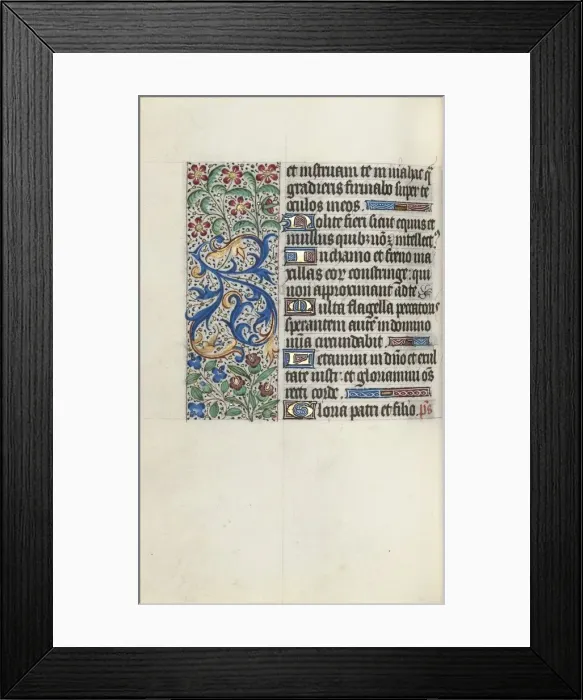 et instruam te in via hac q̃
gradieris firmabo super te
oculos meos.
Nolite fieri sicut equus et
mulus quib; nõ ẽ intellect9
In chamo et freno ma
xillas eoꝝ constringe: qui
non approximant ad te
Multa flagella peccatoris
sperantem autẽ in domino
mĩa circundabit
Letamini in dño et exul
tate iusti: et gloriamini oẽs
recti corde.
Gloria patri et filio. p̃s